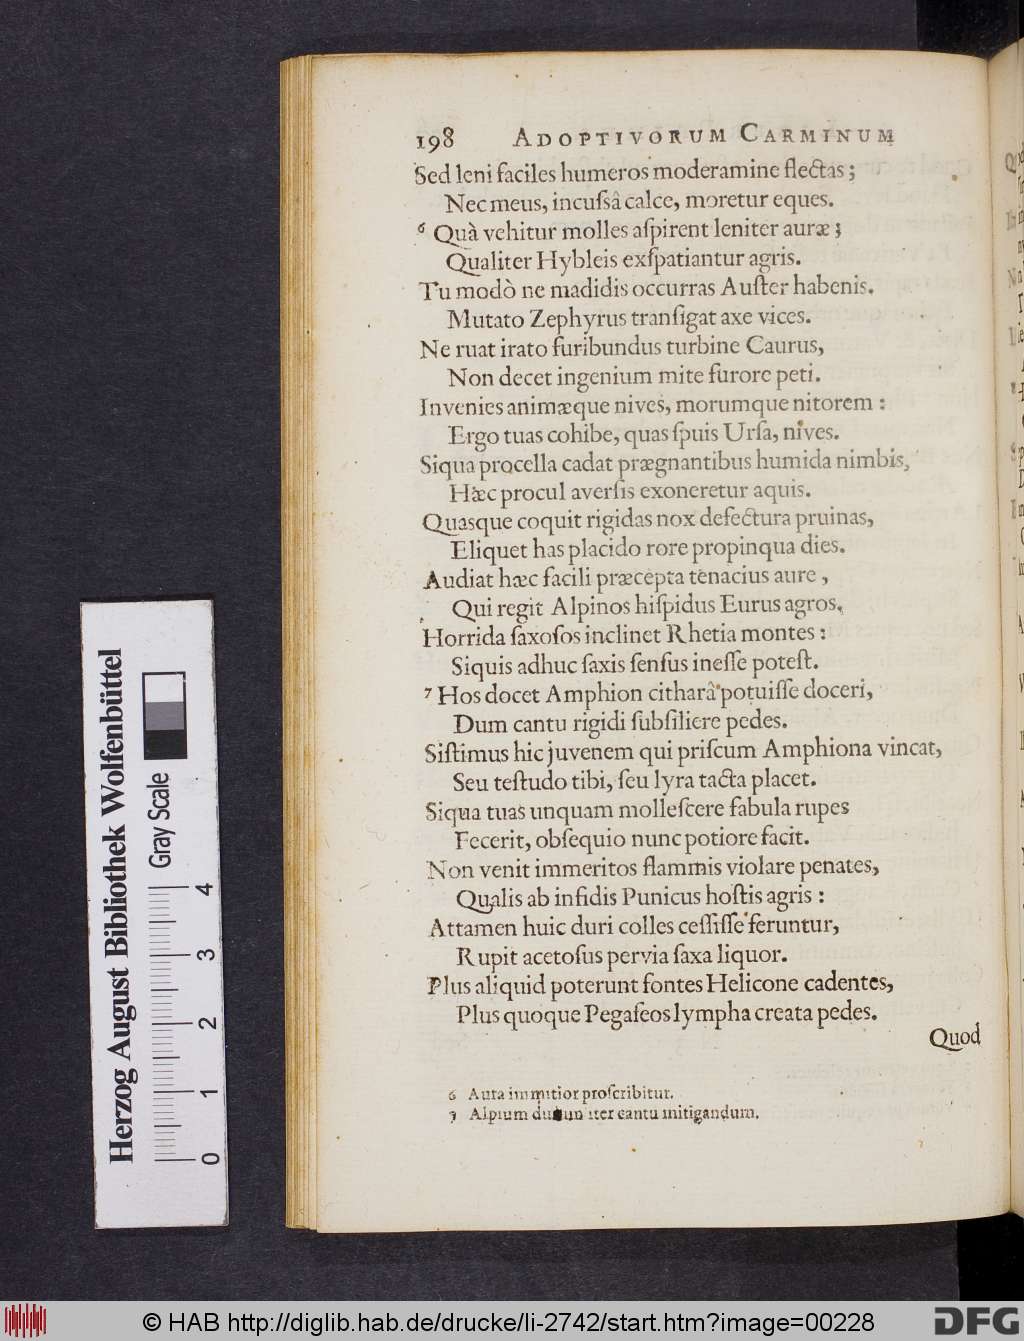 198 ADOPTIVORUM CARMINUM
Sed leni faciles humeros moderamine flectas;
Nec meus, incuſsâ calce, moretur eques.
6 Quà vehitur molles aſpirent leniter auræ;
Qualiter Hybleis exſpatiantur agris.
Tu modò ne madidis occurras Auſter habenis.
Mutato Zephyrus tranſigat axe vices.
Ne ruat irato furibundus turbine Caurus,
Non decet ingenium mite furore peti.
Invenies animæque nives, morumque nitorem:
Ergo tuas cohibe, quas ſpuis Urſa, nives.
Siqua procella cadat prægnantibus humida nimbis,
Hæc procul averſis exoneretur aquis.
Quasque coquit rigidas nox defectura pruinas,
Eliquet has placido rore propinqua dies.
Audiat hæc facili præcepta tenacius aure,
Qui regit Alpinos hiſpidus Eurus agros.
Horrida ſaxoſos inclinet Rhetia montes:
Siquis adhuc ſaxis ſenſus ineſſe poteſt.
7 Hos docet Amphion citharâ potuiſſe doceri,
Dum cantu rigidi ſubſiliere pedes.
Siſtimus hic juvenem qui priſcum Amphiona vincat,
Seu teſtudo tibi, ſeu lyra tacta placet.
Siqua tuas unquam molleſcere fabula rupes
Fecerit, obſequio nunc potiore facit.
Non venit immeritos flammis violare penates,
Qualis ab infidis Punicus hoſtis agris:
Attamen huic duri colles ceſſiſſe feruntur,
Rupit acetoſus pervia ſaxa liquor.
Plus aliquid poterunt fontes Helicone cadentes,
Plus quoque Pegaſeos lympha creata pedes.
Quod
6 Aura immitior proſcribitur.
7 Alpium iter cantu mitigandum.
Herzog August Bibliothek Wolfenbüttel
Gray Scale
0 1 2 3 4
© HAB http://diglib.hab.de/drucke/li-2742/start.htm?image=00228
DFG